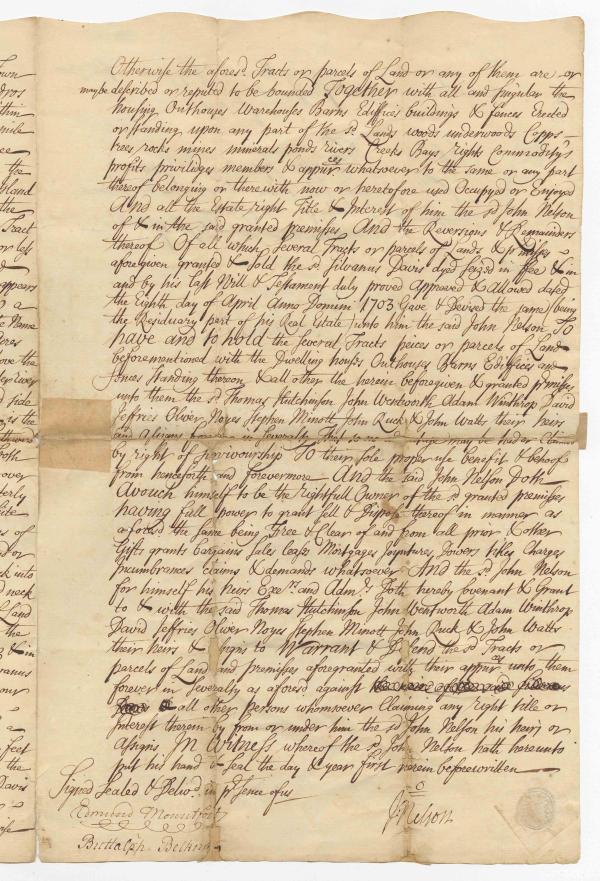 Otherwise the afores.d Tracts or parcels of Land or any of them are or
may be described or reputed to be bounded Together with all and singular the
housing Outhouses Warehouses Barns Edifices buildings & fences Erected
or standing upon any part of the s.d Lands woods underwoods Copps
trees rocks mines minerals ponds rivers Creeks Bays rights Commoditys
profits priviledges members & appur.ces whatsoever to the same or any part
thereof belonging or therewith now or heretofore used Occupyed or Enjoyed
And all the Estate right Title & Interest of him the s.d John Nelson
of & in the said granted premises And the Reversions & Remainders
thereof Of all which Several Tracts or parcels of Lands & p.rmises
aforegiven granted & Sold the s.d Silvanus Davis dyed seized in Fee & in
and by his Last Will & Testament duly proved Approved & Allowed dated
the Eighth day of April Anno Domini 1703 Gave & Devised the same (being
the Residuary part of his Real Estate) unto him the said John Nelson To
have and to hold the Several Tracts peices or parcels of Land
beforementioned with the Dwelling houses Outhouses Barns Edifices and
fences Standing thereon & all other the herein beforegiven & granted p.rmises
unto them the s.d Thomas Hutchinson John Wentworth Adam Winthrop David
Jeffries Oliver Noyes Stephen Minott John Ruck & John Watts their heirs
and Assigns forever in Severalty That so no advantage may be had or claimed
by right of Survivourship To their Sole proper use benefit & behoof
from henceforth and forevermore And the said John Nelson Doth
Avouch himself to be the rightfull Owner of the s.d granted premises
having full power to grant sell & Dispose thereof in manner as
afores.d the same being Free & Clear of and from all prior & other
Gifts grants bargains Sales Leases Mortgages Joyntures Dowers titles Charges
Incumbrances claims & demands whatsoever And the s.d John Nelson
for himself his heirs Exe.rs and Adm.rs Doth hereby covenant & Grant
to & with the said Thomas Hutchinson John Wentworth Adam Winthrop
David Jeffries Oliver Noyes Stephen Minott John Ruck & John Watts
their heirs & Assigns to Warrant & Defend the s.d Tracts or
parcels of Land and premises aforegranted with their appur.ces unto them
forever in Severalty as afores.d against
& all other Persons whomsoever Claiming any right title or
Interest therein by from or under him the s.d John Nelson his heirs or
Assigns In Witness whereof the s.d John Nelson hath hereunto
put his hand & seal the day & year first herein beforewritten
Signed Sealed & Deliv.d in p.rsence of us
J Nelson
Edmund Mountfort
Buttolph Belknap